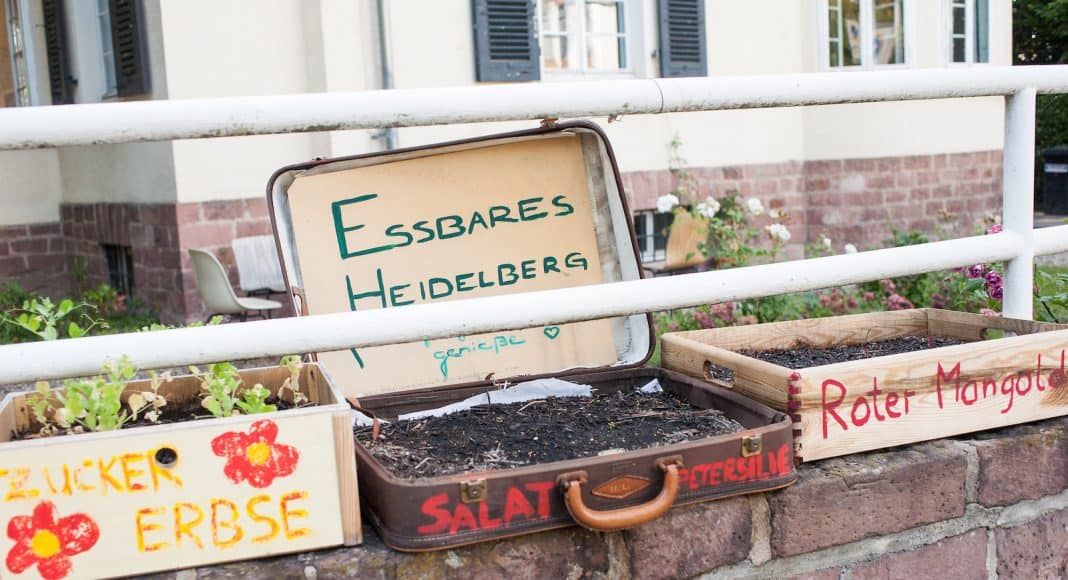 ESSBARES
HEIDELBERG
genieße
ZUCKER
ERBSE
SALAT
PETERSILIE
ROTER MANGOLD